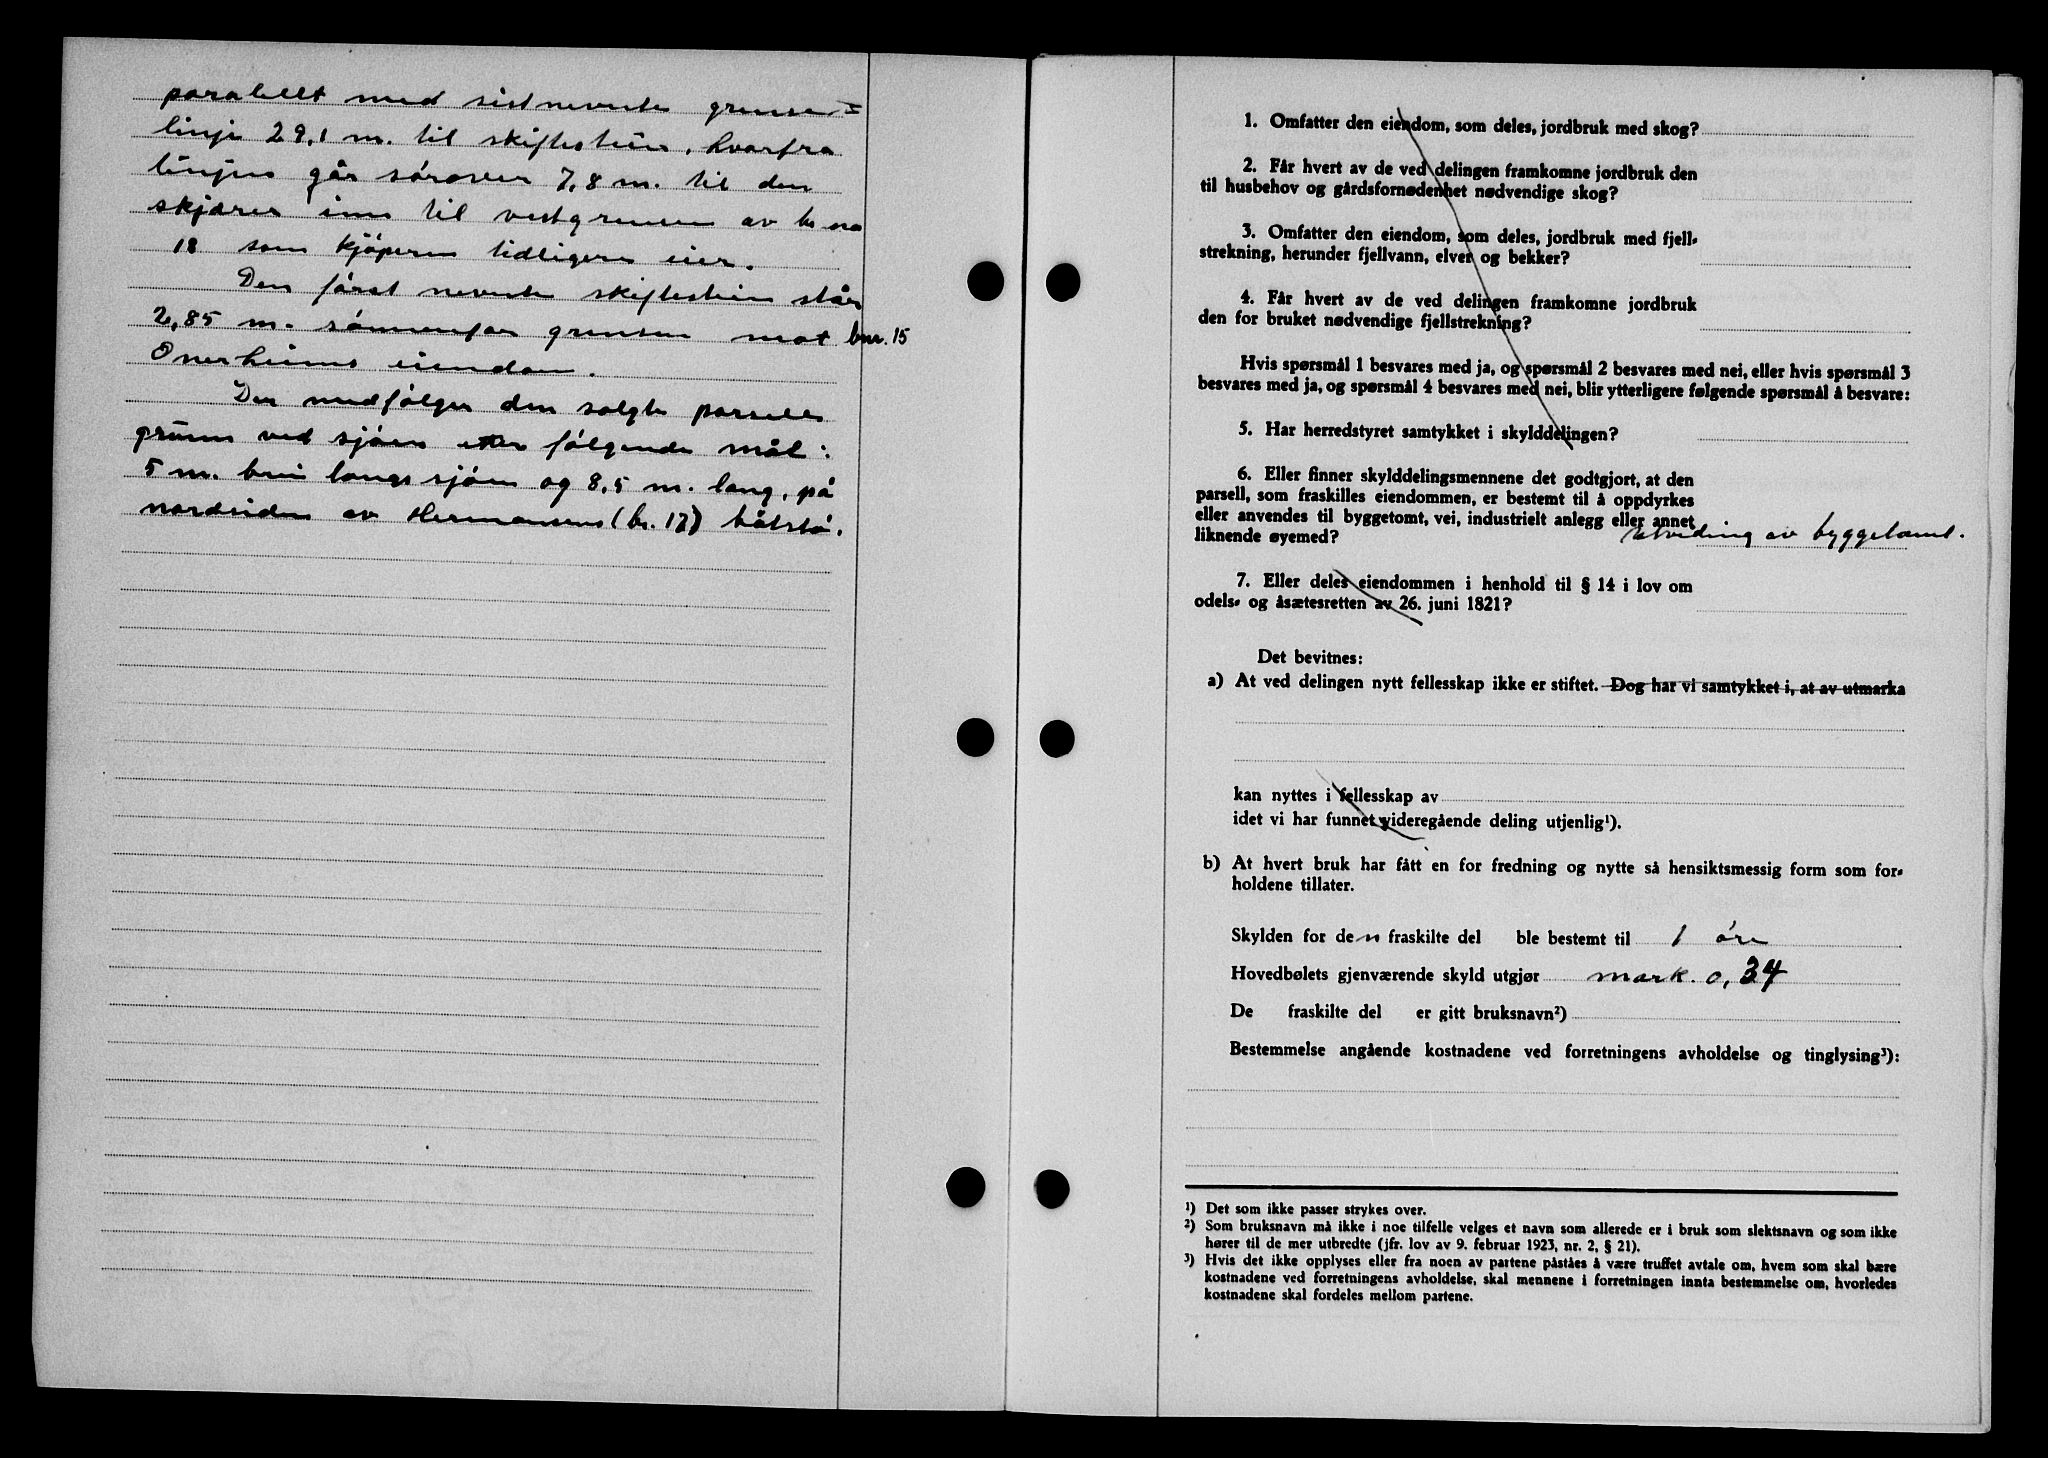 parallelt med sistnevnte grense=
linje 29,1 m. til skiftestein, hvorfra
linjen går sørover 7,8 m. til den
skjærer inn til vestgrensen av br no
18 som kjøperen tidligere eier.
Den først nevnte skiftestein står
2,85 m. sønnenfor grensen mot bnr. 15
Onerheims eiendom.
Der medfølger den solgte parsell
grunn ved sjøen etter følgende mål:
5 m. brei langs sjøen og 8,5 m. lang, på
nordsiden av Hermansens (br. 17) båtstø.
1. Omfatter den eiendom, som deles, jordbruk med skog?
2. Får hvert av de ved delingen framkomne jordbruk den
til husbehov og gårdsfornødenhet nødvendige skog?
3. Omfatter den eiendom, som deles, jordbruk med fjell-
strekning, herunder fjellvann, elver og bekker?
4. Får hvert av de ved delingen framkomne jordbruk
den for bruket nødvendige fjellstrekning?
Hvis spørsmål 1 besvares med ja, og spørsmål 2 besvares med nei, eller hvis spørsmål 3
besvares med ja, og spørsmål 4 besvares med nei, blir ytterligere følgende spørsmål å besvare:
5. Har herredstyret samtykket i skylddelingen?
6. Eller finner skylddelingsmennene det godtgjort, at den
parsell, som fraskilles eiendommen, er bestemt til å oppdyrkes
eller anvendes til byggetomt, vei, industrielt anlegg eller annet
liknende øyemed? Utviding av byggetomt.
7. Eller deles eiendommen i henhold til § 14 i lov om
odels- og åsætesretten av 26. juni 1821?
Det bevitnes:
a) At ved delingen nytt fellesskap ikke er stiftet. Dog har vi samtykket i, at av utmarka
kan nyttes i fellesskap av
idet vi har funnet videregående deling utjenlig¹).
b) At hvert bruk har fått en for fredning og nytte så hensiktsmessig form som for-
holdene tillater.
Skylden for den fraskilte del ble bestemt til 1 øre
Hovedbølets gjenværende skyld utgjør mark. 0,34
De fraskilte del er gitt bruksnavn²)
Bestemmelse angående kostnadene ved forretningens avholdelse og tinglysing³):
¹) Det som ikke passer strykes over.
²) Som bruksnavn må ikke i noe tilfelle velges et navn som allerede er i bruk som slektsnavn og som ikke
hører til de mer utbredte (jfr. lov av 9. februar 1923, nr. 2, § 21).
³) Hvis det ikke opplyses eller fra noen av partene påstås å være truffet avtale om, hvem som skal bære
kostnadene ved forretningens avholdelse, skal mennene i forretningen innta bestemmelse om, hvorledes
kostnadene skal fordeles mellom partene.